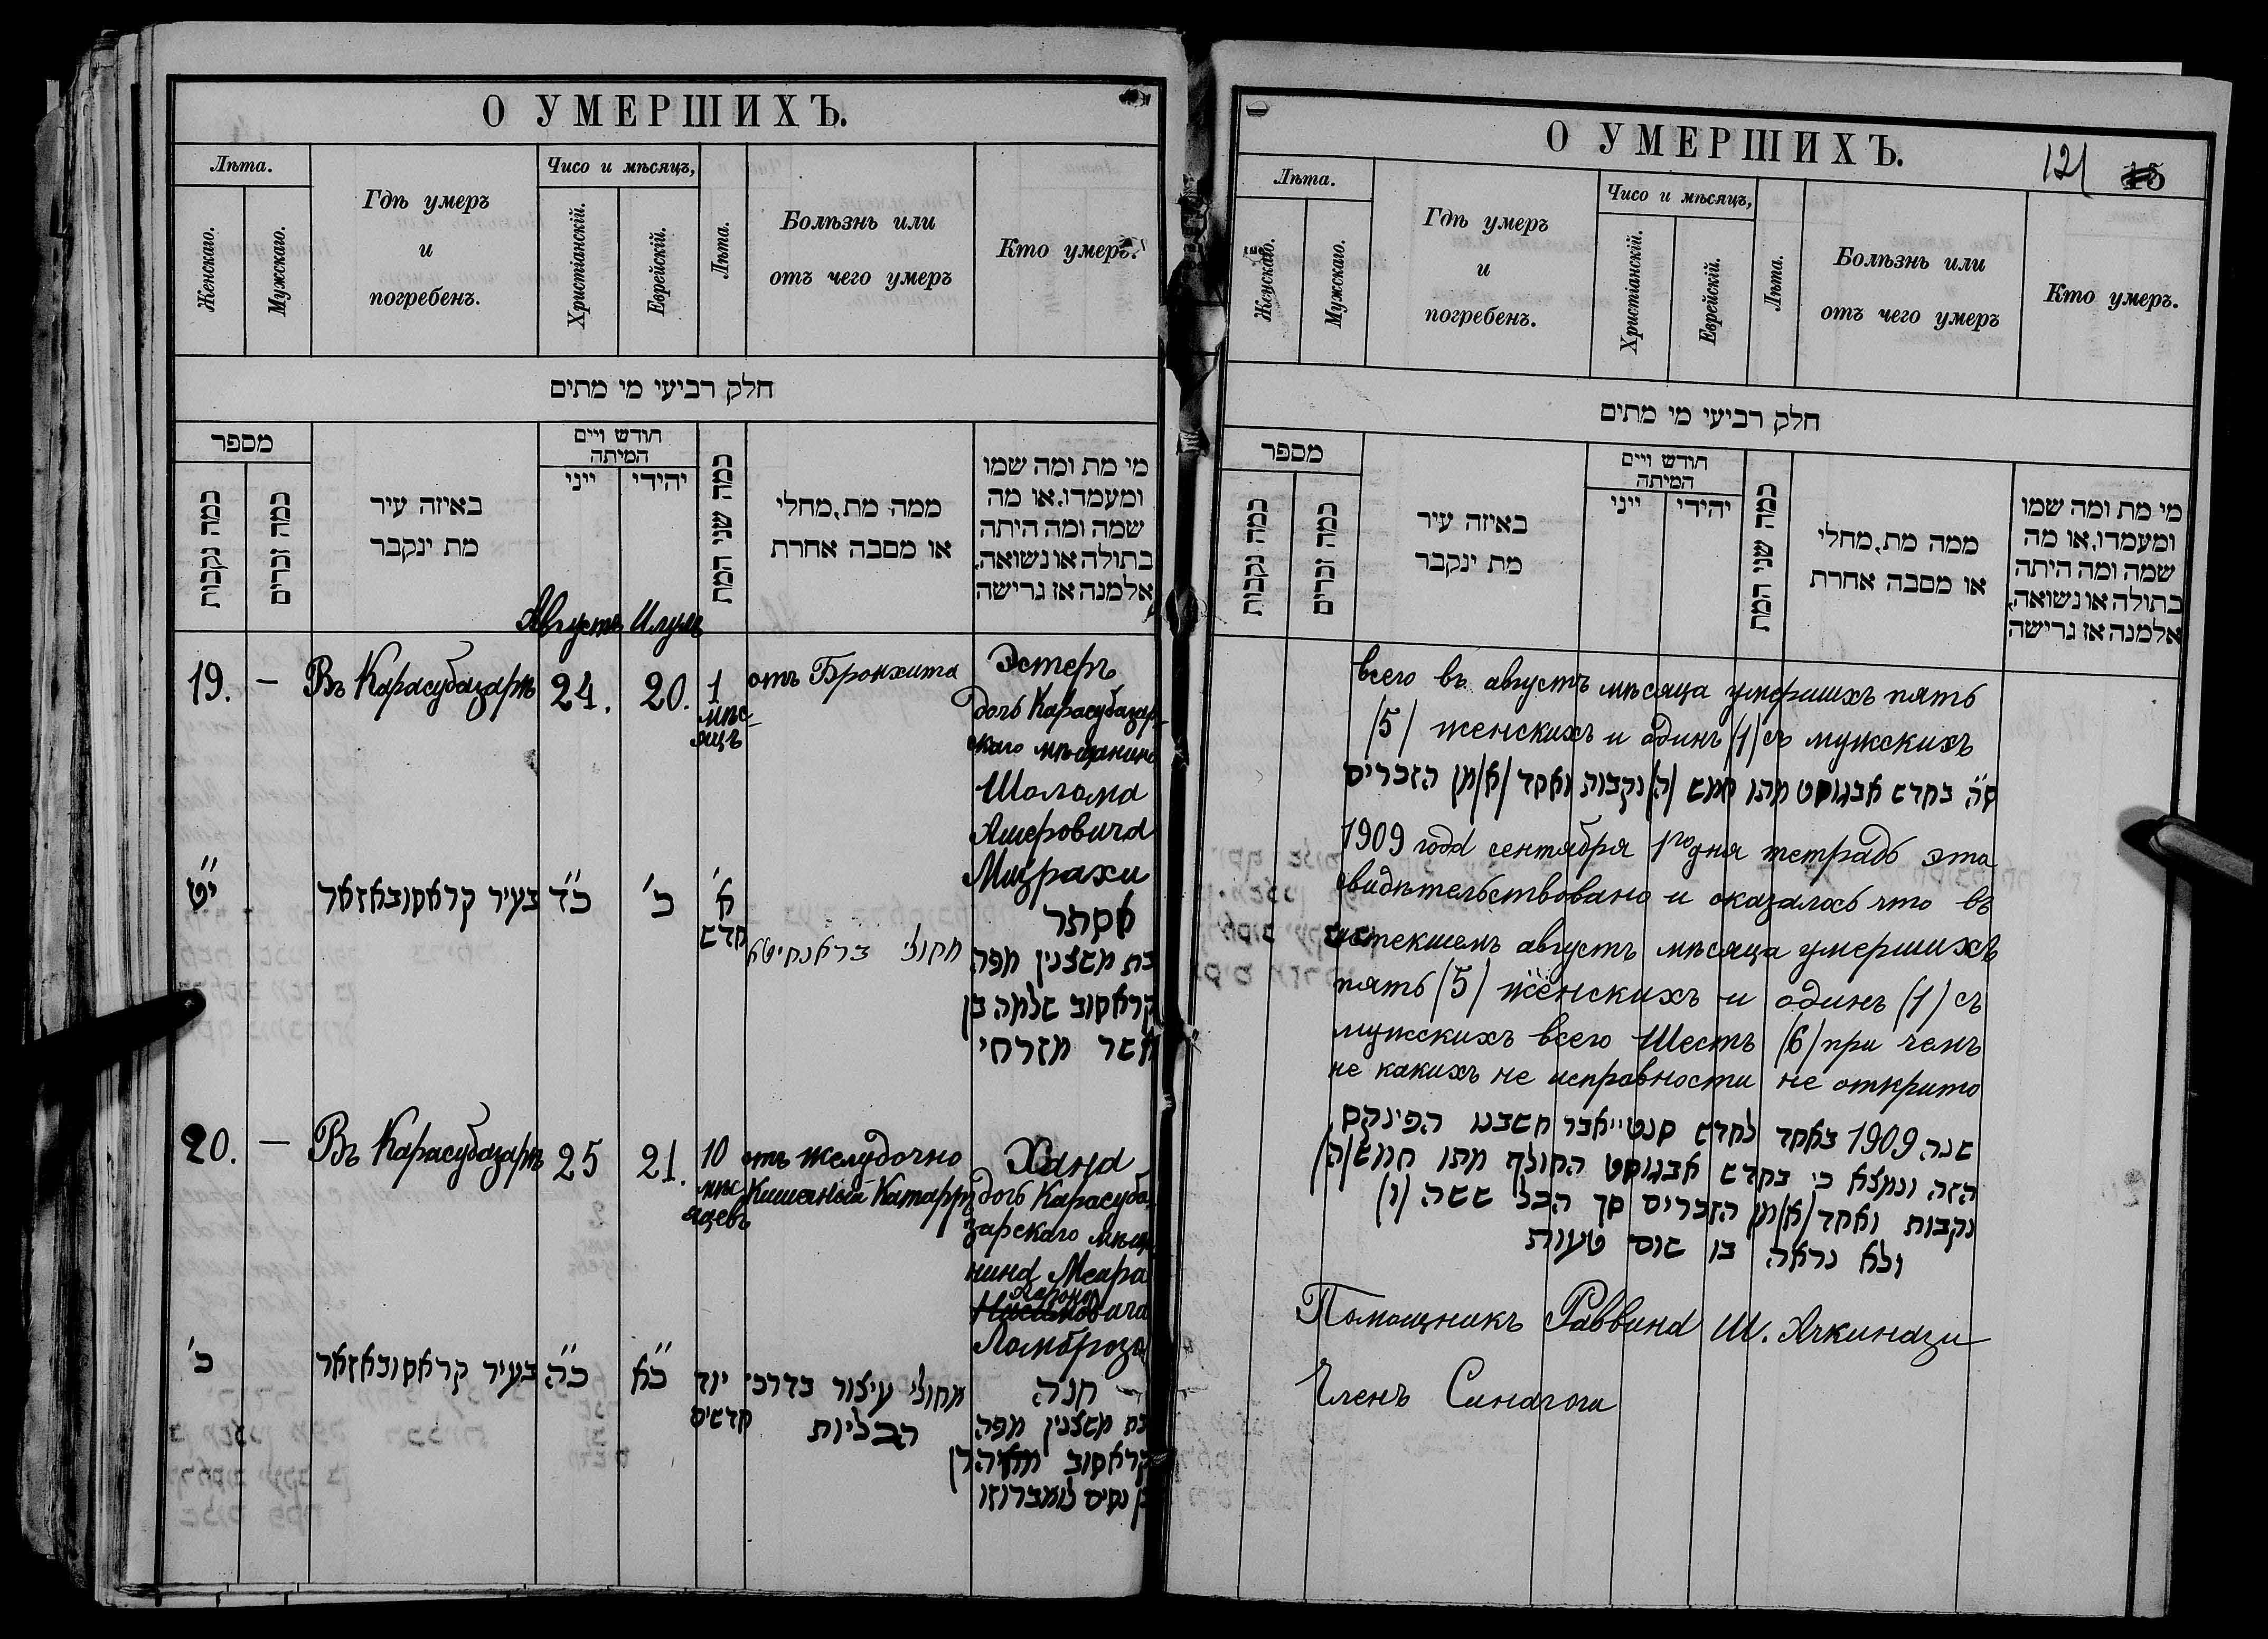 О УМЕРШИХЪ.
Лѣта.
Женскаго.
Мужскаго.
Гдѣ умеръ
и
погребенъ.
Чисо и мѣсяцъ,
Христіанскій.
Еврейскій.
Лѣта.
Болѣзнь или
отъ чего умеръ
Кто умеръ.
חלק רביעי מי מתים
מספר
כמה נקבות
כמה זכרים
באיזה עיר
מת ינקבר
חודש ויים
המיתה
ייני
יהידי
כמה שני המת
ממה מת, מחלי
או מסבה אחרת
מי מת ומה שמו
ומעמדו, או מה
שמה ומה היתה
בתולה או נשואה,
אלמנה אז גרישה
Августъ Илулъ
19. — Въ Карасубазарѣ 24. 20. 1 мѣс-
яцъ
отъ Бронхита
Эстеръ
дочь Карасубазар-
скаго мѣщанина
Шолома
Ашеровича
Мизрахи
י"ט
בעיר קראסובאזאר
כ"ד
כ'
א'
חדש
מחולי בראנחיטא
אסתר
בת משצנין מפה
קראסוב שלמה בן
אשר מזרחי
20. — Въ Карасубазарѣ 25 21. 10 мѣс
яцевъ
отъ желудочно
Кишечный Катарръ
Хана
дочь Карасуба-
зарскаго мѣща-
нина Меара
Аароно
Нисимовича
Ломброзо
כ'
בעיר קראסובאזאר
כ"ה
כ"א
יוד
חדשים
מחולי עיצור בדרכי
הבליות
חנה
בת משצנין מפה
קראסוב אהרן
בן נסים לומברוזו
О УМЕРШИХЪ.
121
15
Лѣта.
Женскаго.
Мужскаго.
Гдѣ умеръ
и
погребенъ.
Чисо и мѣсяцъ,
Христіанскій.
Еврейскій.
Лѣта.
Болѣзнь или
отъ чего умеръ
Кто умеръ.
חלק רביעי מי מתים
מספר
כמה נקבות
כמה זכרים
באיזה עיר
מת ינקבר
חודש ויים
המיתה
ייני
יהידי
כמה שני המת
ממה מת, מחלי
או מסבה אחרת
מי מת ומה שמו
ומעמדו, או מה
שמה ומה היתה
בתולה או נשואה,
אלמנה אז גרישה
всего въ августъ мѣсяца умершихъ пять
(5) женскихъ и одинъ (1) съ мужскихъ
ס"ה בחדש אבגוסט מתו חמש (ה) נקבות ואחד (א) מן הזכרים
1909 года сентября 1го дня тетрадь эта
свидѣтельствовано и оказалось что въ
истекшемъ августъ мѣсяца умершихъ
пять (5) женскихъ и одинъ (1) съ
мужскихъ всего Шесть (6) при чемъ
не какихъ не исправности не открито
שנה 1909 באחד לחדש סנטייאבר חשבנו הפינקס
הזה ונמצא כי בחדש אבגוסט החולף מתו חמש (ה)
נקבות ואחד (א) מן הזכרים סך הכל ששה (ו)
ולא נראה בו שום טעות
Помощникъ Раввина Ш. Ачкинази
Членъ Синагоги